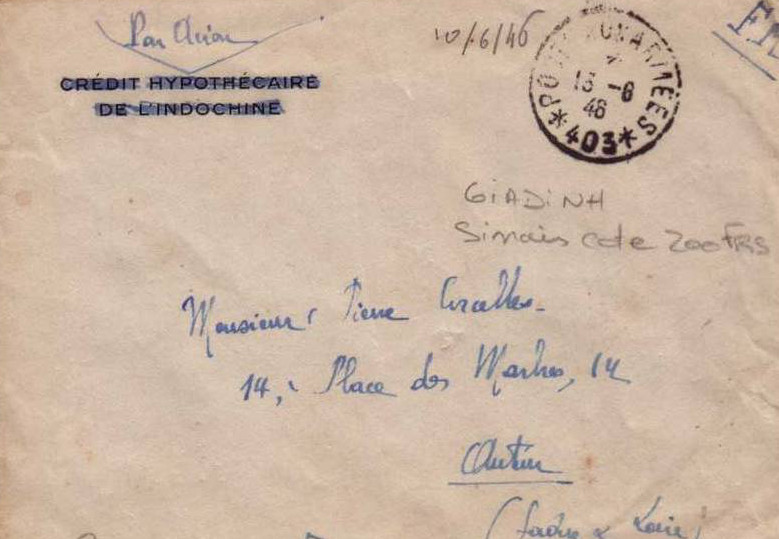 Par Avion
CRÉDIT HYPOTHÉCAIRE
DE L'INDOCHINE
10/6/46
POSTE AUX ARMÉES
13 -6
46
*403*
GIADINH
Sinais cote 200 FRS
Monsieur Pierre
14, Place des Marbres, 14
Autun
(Saône & Loire)